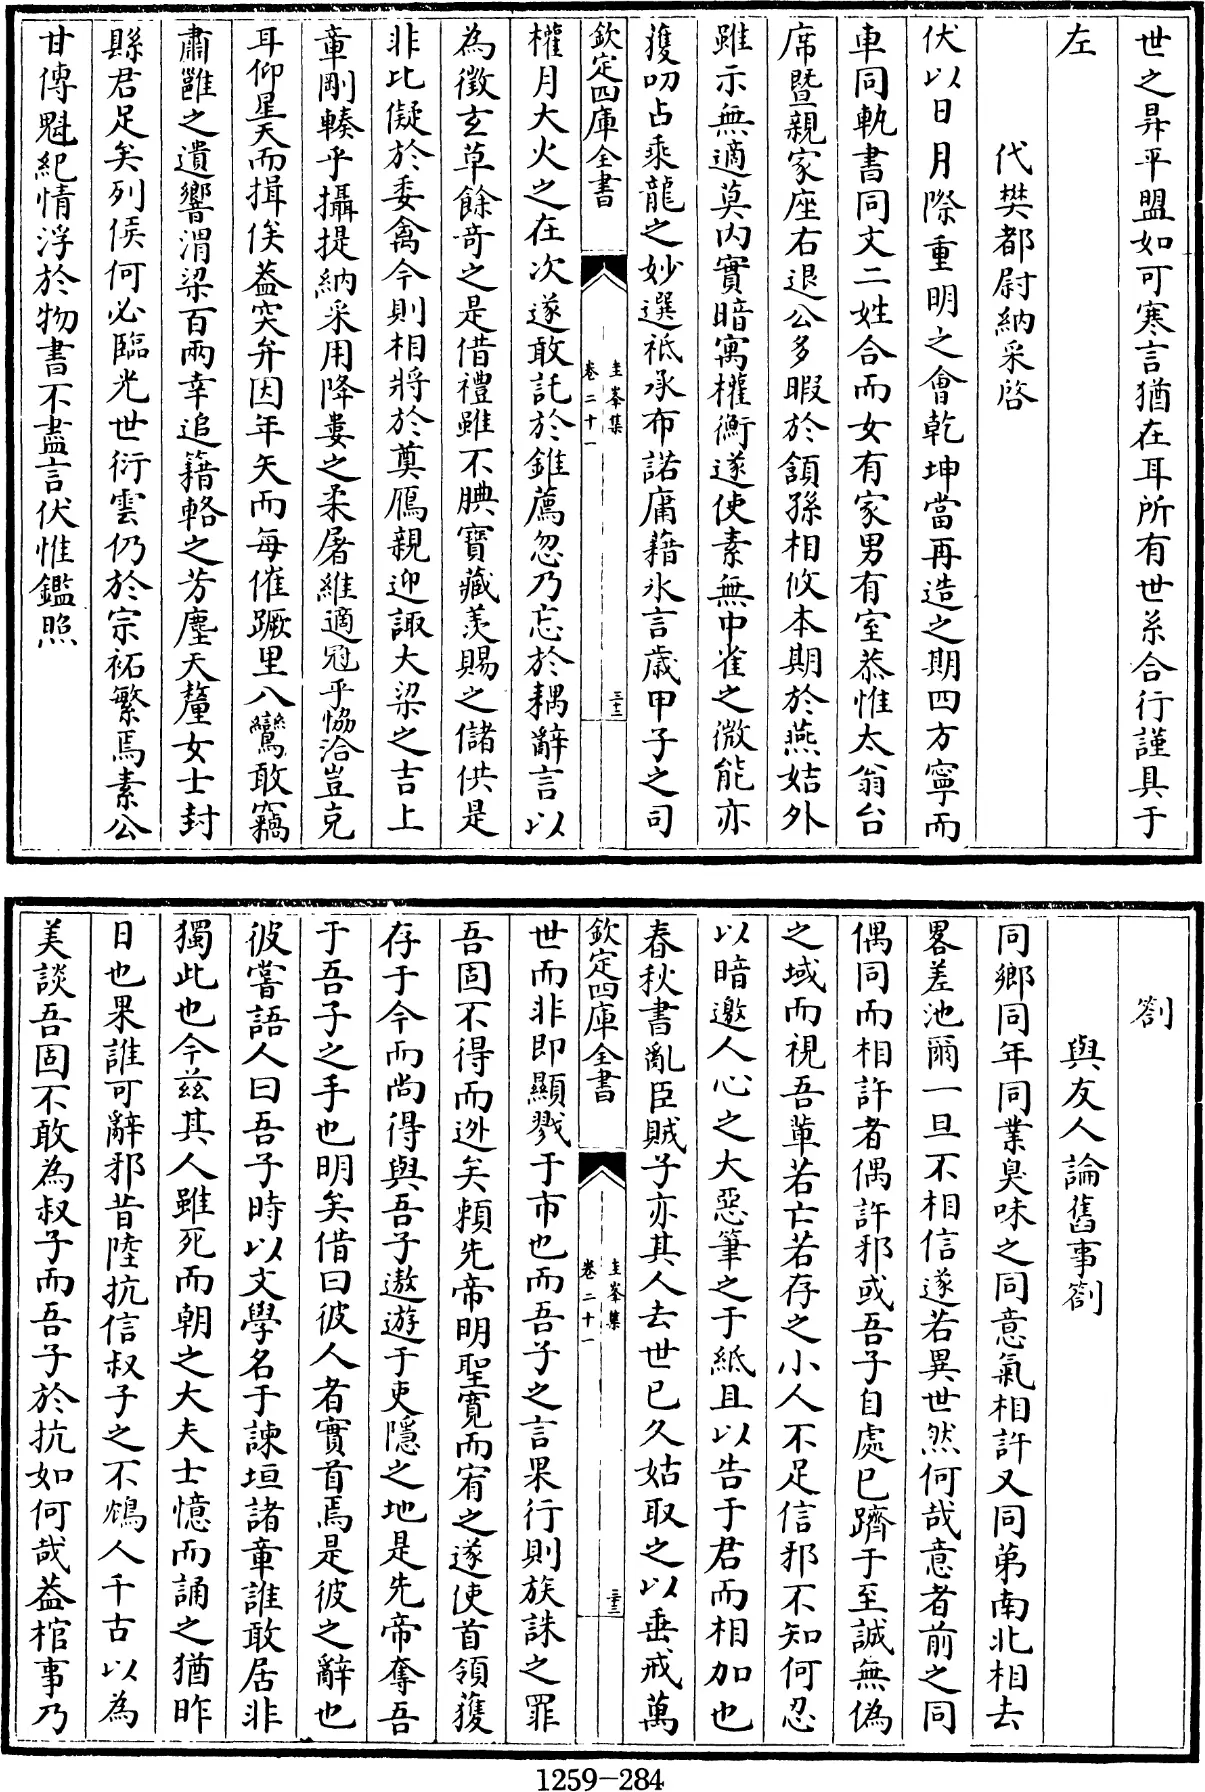 世之昇平盟如可寒言猶在耳所有世系合行謹具于
左
代樊都尉納采啓
伏以日月際重明之會乾坤當再造之期四方寧而
車同軌書同文二姓合而女有家男有室恭惟太翁台
席暨親家座右退公多暇於頷孫相攸本期於燕姞外
雖示無適莫内實暗寓權衡遂使素無中雀之微能亦
獲叨占乘龍之妙選祗承布諾庸藉氷言歲甲子之司
欽定四庫全書
圭峯集
卷二十一
三十二
權月大火之在次遂敢託於錐薦忽乃忘於耦辭言以
為徵玄草餘奇之是借禮雖不腆寶藏羡賜之儲供是
非比儗於委禽今則相將於奠鴈親迎諏大梁之吉上
章剛輳乎攝提納采用降婁之柔屠維適冠乎恊洽豈克
耳仰星天而揖俟葢突弁因年矢而每催蹶里八鸞敢竊
肅雝之遺響渭梁百兩幸追籍輅之芳塵天釐女士封
縣君足矣列侯何必臨光世衍雲仍於宗祏繁焉素公
甘傳魁紀情浮於物書不盡言伏惟鑑照
劄
與友人論舊事劄
同鄉同年同業臭味之同意氣相許又同第南北相去
畧差池爾一旦不相信遂若異世然何哉意者前之同
偶同而相許者偶許邪或吾子自處已躋于至誠無偽
之域而視吾輩若亡若存之小人不足信邪不知何忍
以暗邀人心之大惡筆之于紙且以告于君而相加也
春秋書亂臣賊子亦其人去世已久姑取之以垂戒萬
欽定四庫全書
圭峯集
卷二十一
三十三
世而非即顯戮于市也而吾子之言果行則族誅之罪
吾固不得而迯矣頼先帝明聖寛而宥之遂使首領獲
存于今而尚得與吾子遨遊于吏隱之地是先帝奪吾
于吾子之手也明矣借曰彼人者實首焉是彼之辭也
彼嘗語人曰吾子時以文學名于諫垣諸章誰敢居非
獨此也今兹其人雖死而朝之大夫士憶而誦之猶昨
日也果誰可辭邪昔陸抗信叔子之不鴆人千古以為
美談吾固不敢為叔子而吾子於抗如何哉葢棺事乃
1259-284